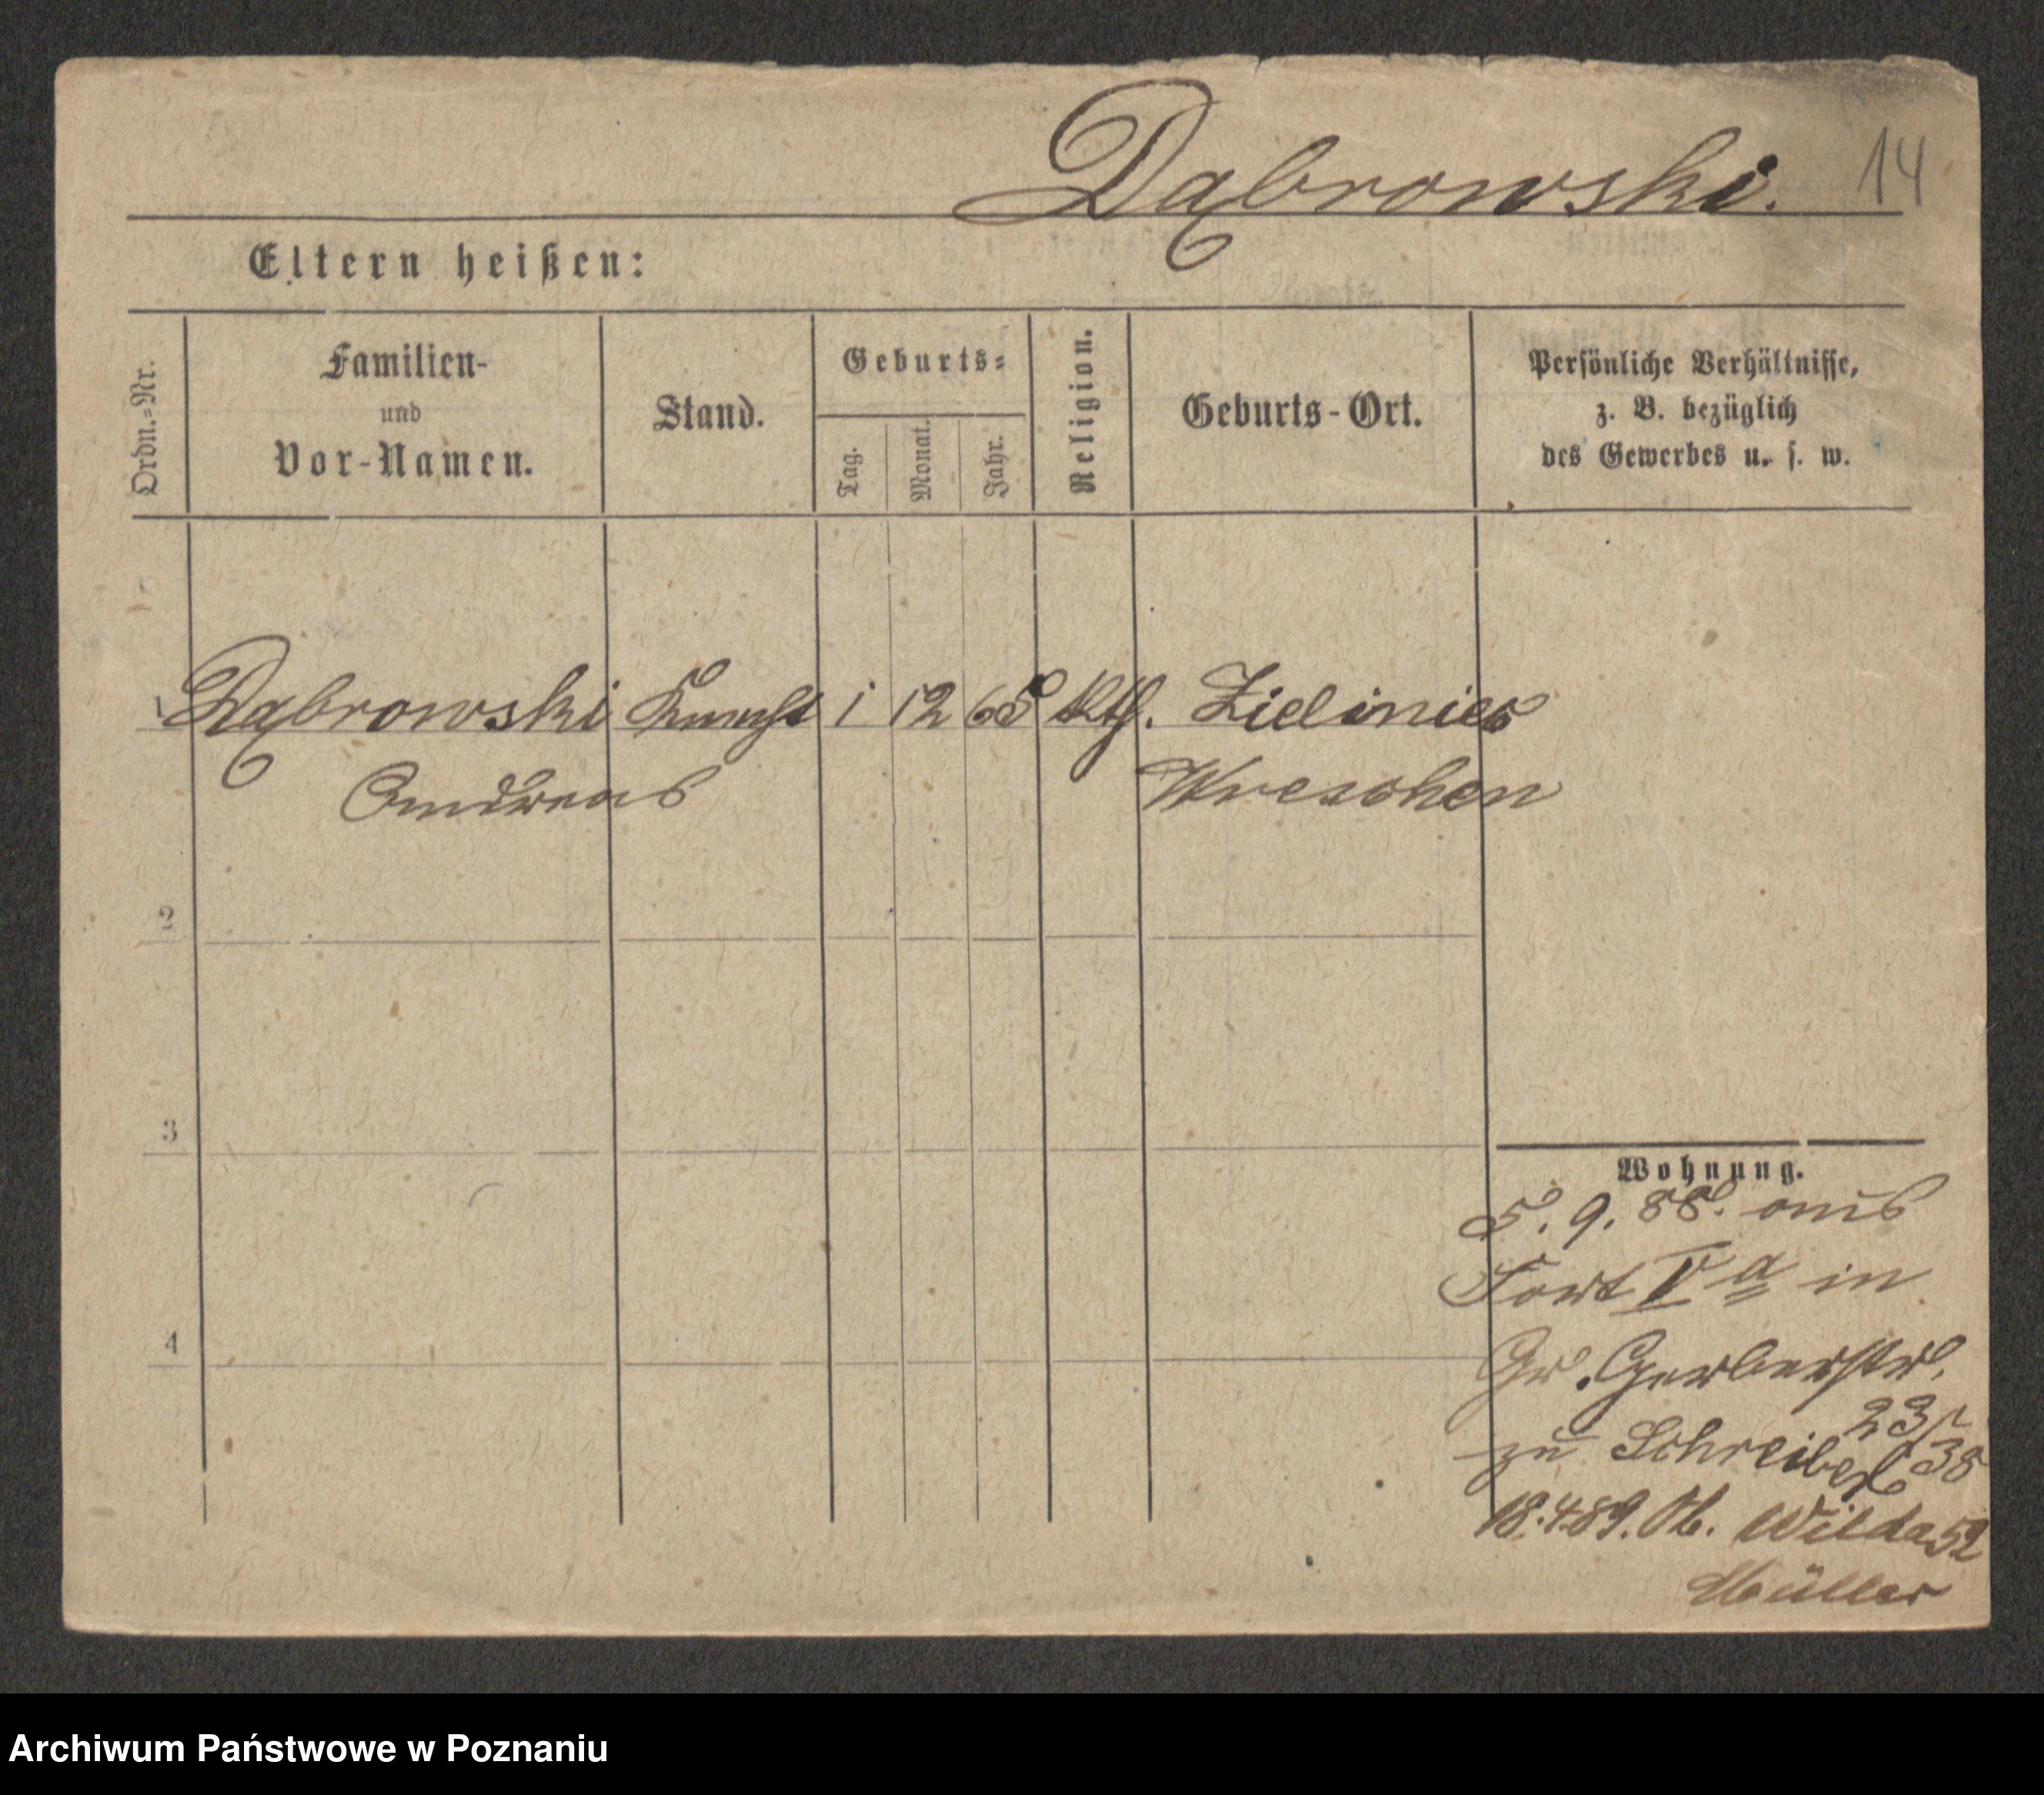 Dąbrowski. 14
Eltern heißen:
Ordn.=Nr.
Familien-
und
Vor-Namen.
Stand.
Geburts=
Tag.
Monat.
Jahr.
Religion.
Geburts-Ort.
Persönliche Verhältnisse,
z. B. bezüglich
des Gewerbes u. s. w.
1 Dąbrowski Knecht 1 12 65 kth. Zielinies
Andreas Wreschen
2
3
4
Wohnung.
5. 9. 88. aus
Fort V a in
Gr. Gerberstr.
23/
zu Schreiber 38
18.4.89. Ob. Wilda 52
Müller
Archiwum Państwowe w Poznaniu